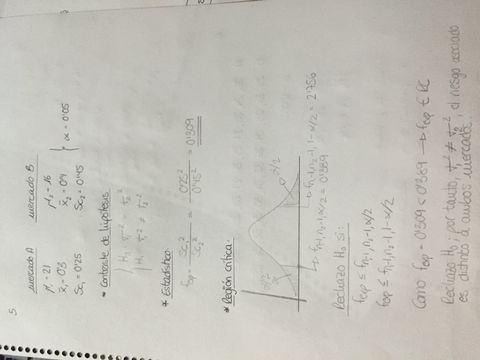 5
mercado A
n₁ = 21
x̄₁ = 0'3
Sc₁ = 0'25
mercado B
n₂ = 16
x̄₂ = 0'4
Sc₂ = 0'45
} α = 0'05
* Contraste de hipótesis
H₀ σ₁² = σ₂²
H₁ σ₁² ≠ σ₂²
* Estadístico.
fexp = Sc₁² / Sc₂² = 0'25² / 0'45² = 0'309
* Región crítica.
α/2
α/2
→ fn₁-1, n₂-1, 1-α/2 = 2'756
→ fn₁-1, n₂-1, α/2 = 0'389
Rechazo H₀ si:
fexp ≤ fn₁-1, n₂-1, α/2
fexp ≤ fn₁-1, n₂-1, 1-α/2
Como fexp = 0'309 < 0'389 → fexp ∈ RC
Rechazo H₀; por tanto, σ₁² ≠ σ₂², el riesgo asociado
es distinto a ambos mercados.